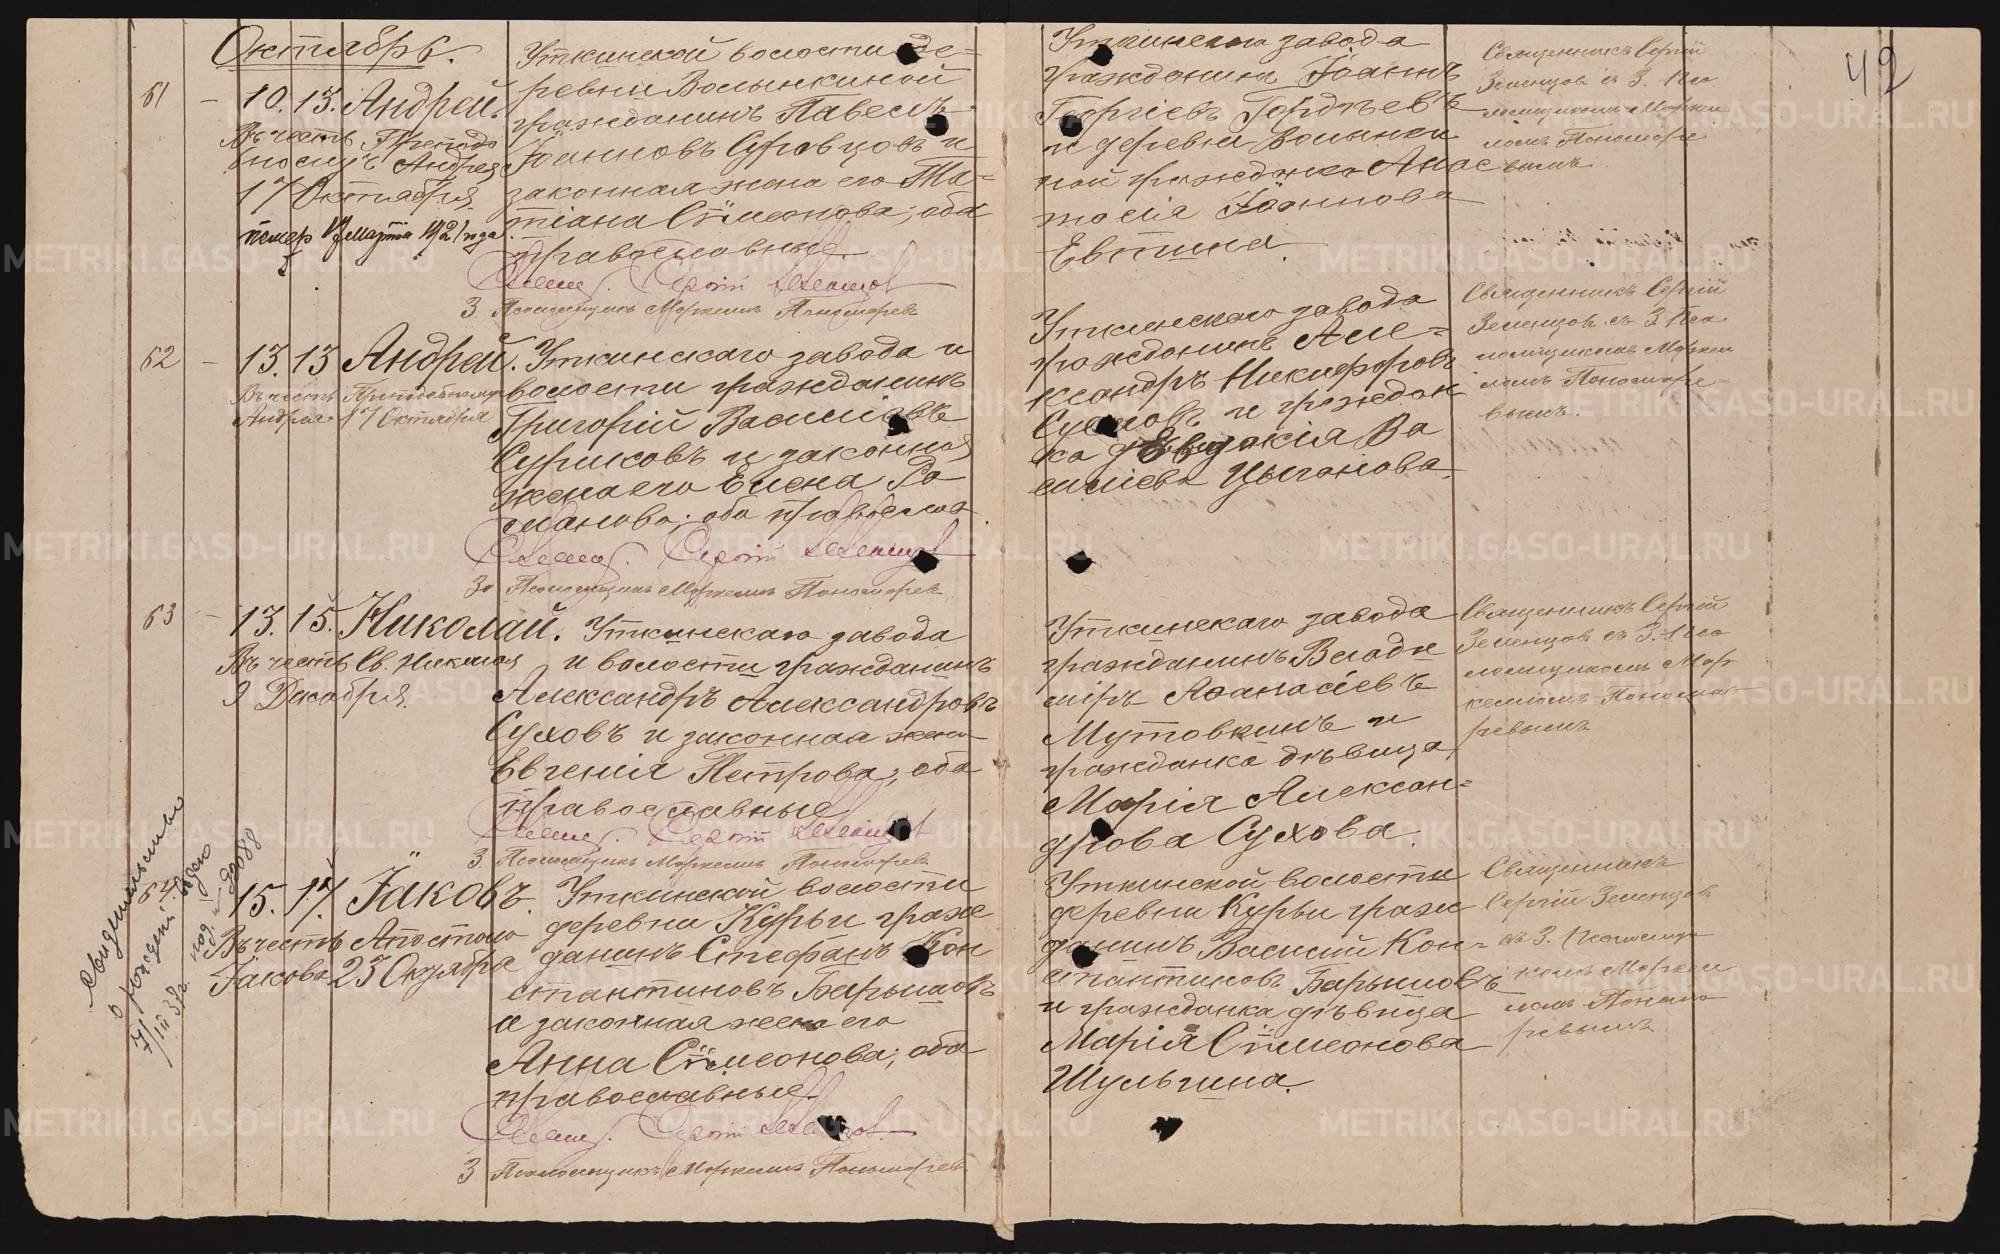 Октябрь.
42
61
10. 13. Андрей.
Въ честь Преподо
бномуч. Андрея
17 Октября.
марта 1921 года
Уткинской волости де=
ревни Волынкиной
гражданинъ Павелъ
Іоанновъ Суровцовъ и
законная жена его Та=
тіана Сѵмеонова; оба
православные.
Свящ. Сергій Земенцов
З. Псаломщикъ Маркеллъ Пономарев
Уткинского завода
гражданинъ Іоаннъ
Георгіевъ Гордѣевъ
и деревни Волынки
ной гражданка Анас
тасія Іоаннова
Евтина.
Священникъ Сергій
Земенцов съ З. Пса
ломщикомъ Маркел
ломъ Пономаре
вымъ
62
13. 13 Андрей.
Въ честь Преподобному.
Андрея 17 Октября
Уткинскаго завода и
волости гражданинъ
Григорій Василіевъ
Суриковъ и законная
жена его Елена Ро
манова; оба православ
Свящ. Сергій Земенцов
З. Псаломщикъ Маркеллъ Пономарев
Уткинскаго завода
гражданинъ Але=
ксандръ Никифоровъ
и граждан
ка Евдокія Ва
силіева Цыганова
Священникъ Сергій
Земенцов съ З. Пса
ломщикомъ Маркел
ломъ Пономаре=
вымъ.
63
13. 15. Николай.
Въ честь Св. Николая
9 Декабря.
Уткинскаго завода
и волости гражданинъ
Александръ Александровъ
Суховъ и законная жена
Евгенія Петрова; оба
православные
Свящ. Сергій Земенцов
З. Псаломщикъ Маркеллъ Пономарев
Уткинскаго завода
гражданинъ Влади
міръ Аѳанасіевъ
Мутовкинъ и
гражданка дѣвица
Марія Алексан=
дрова Сухова.
Священникъ Сергій
Земенцов съ З. Пса
ломщикомъ Мар
келломъ Понома
ревымъ
64.
15. 17. Іаковъ.
Въ честь Апостола
Іакова 23 Октября
Уткинской волости
деревни Курьи граж
данинъ Стефанъ Кон
стантиновъ Барышовъ
и законная жена его
Анна Сѵмеонова; оба
православные.
Свящ. Сергій Земенцов
З. Псаломщикъ Маркеллъ Пономарев
Уткинской волости
деревни Курьи граж
данинъ Василій Кон=
стантиновъ Барышовъ
и гражданка дѣвица
Марія Сѵмеонова
Шульгина.
Священникъ
Сергій Земенцов
съ З. Псаломщи
комъ Маркел
ломъ Понома
ревымъ
свидетельство
о рождении выдано
7/III 37г.
METRIKI.GASO-URAL.RU